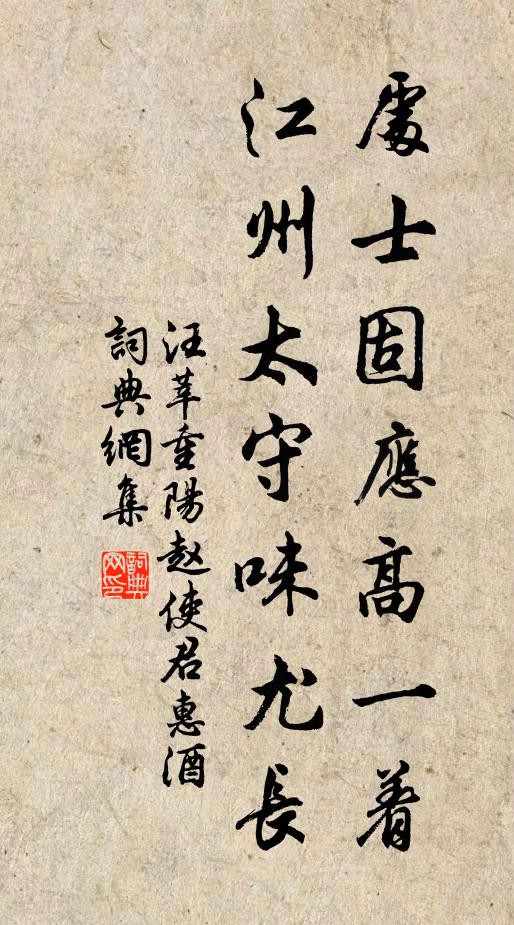 處士固應高一着
江州太守味尤長
汪莘重陽赵使君惠酒
詞典網集
詞典网印